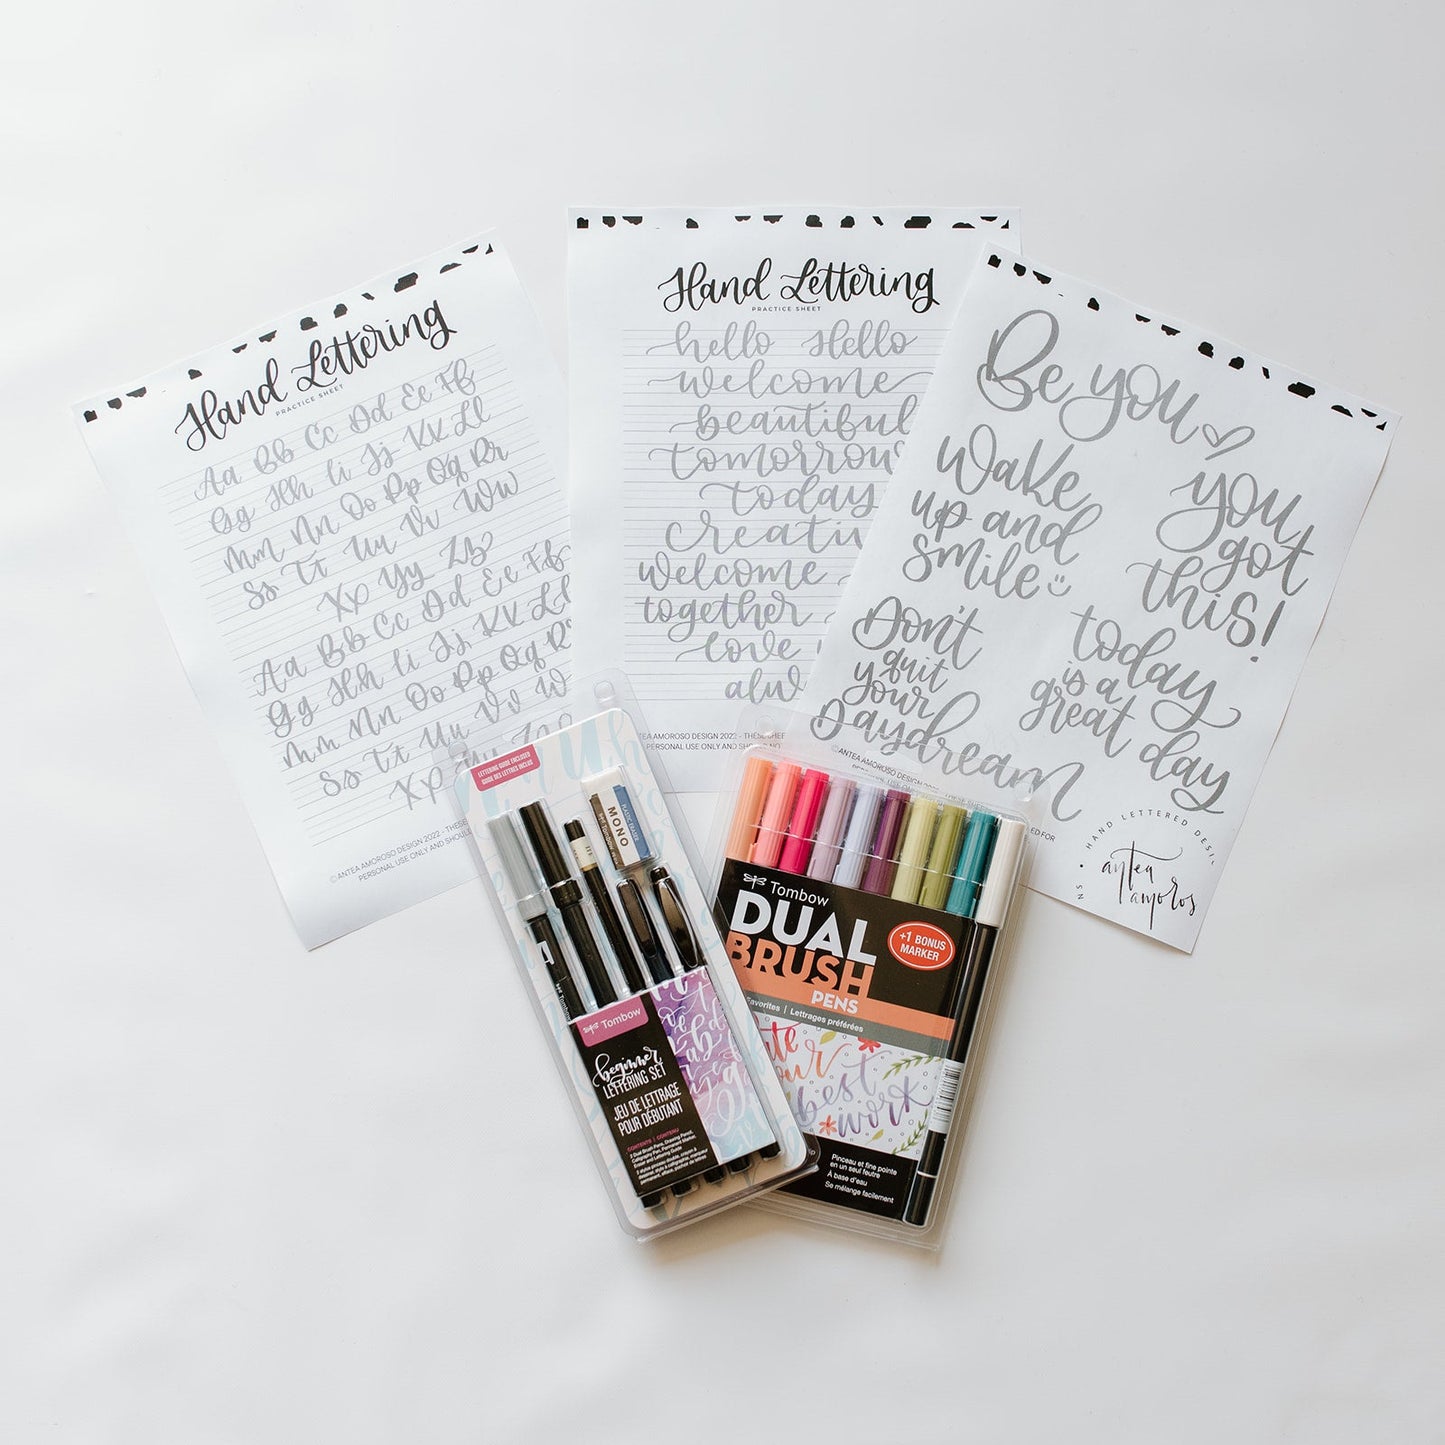 Hand Lettering
PRACTICE SHEET
Aa Bb Cc Dd Ee Ff
Gg Hh Ii Jj Kk Ll
Mm Nn Oo Pp Qq Rr
Ss Tt Uu Vv Ww
Xx Yy Zz
Aa Bb Cc Dd Ee Ff
Gg Hh Ii Jj Kk Ll
Mm Nn Oo Pp Qq Rr
Ss Tt Uu Vv
Xx Yy Zz
©ANTEA AMOROSO DESIGN 2022 - THESE
PERSONAL USE ONLY AND SHOULD
Hand Lettering
PRACTICE SHEET
hello Hello
welcome
beautiful
tomorrow
today
creativ
welcome
together
love
alw
ANTEA AMOROSO DESIGN 2022 - THESE SHEE
PERSONAL USE ONLY AND SHOULD NO
Be you
Wake
up and
smile
you
got
this!
Don't
quit
your
Daydream
today
is a
great day
©ANTEA AMOROSO DESIGN
HAND LETTERED DESIGNS
antea
amoroso
LETTERING GUIDE ENCLOSED
GUIDE DES LETTRES INCLUS
MONO
PLASTIC ERASER
Tombow
Tombow
beginner
LETTERING SET
JEU DE LETTRAGE
POUR DÉBUTANT
CONTENTS | CONTENU
2 Dual Brush Pens, Drawing Pencil,
Calligraphy Pen, Permanent Marker,
Eraser and Lettering Guide
Tombow
DUAL
BRUSH
PENS
+1 BONUS
MARKER
Favorites | Lettrages préférées
your
best
work
Pinceau et fine pointe
en un seul feutre
À base d'eau
Se mélange facilement